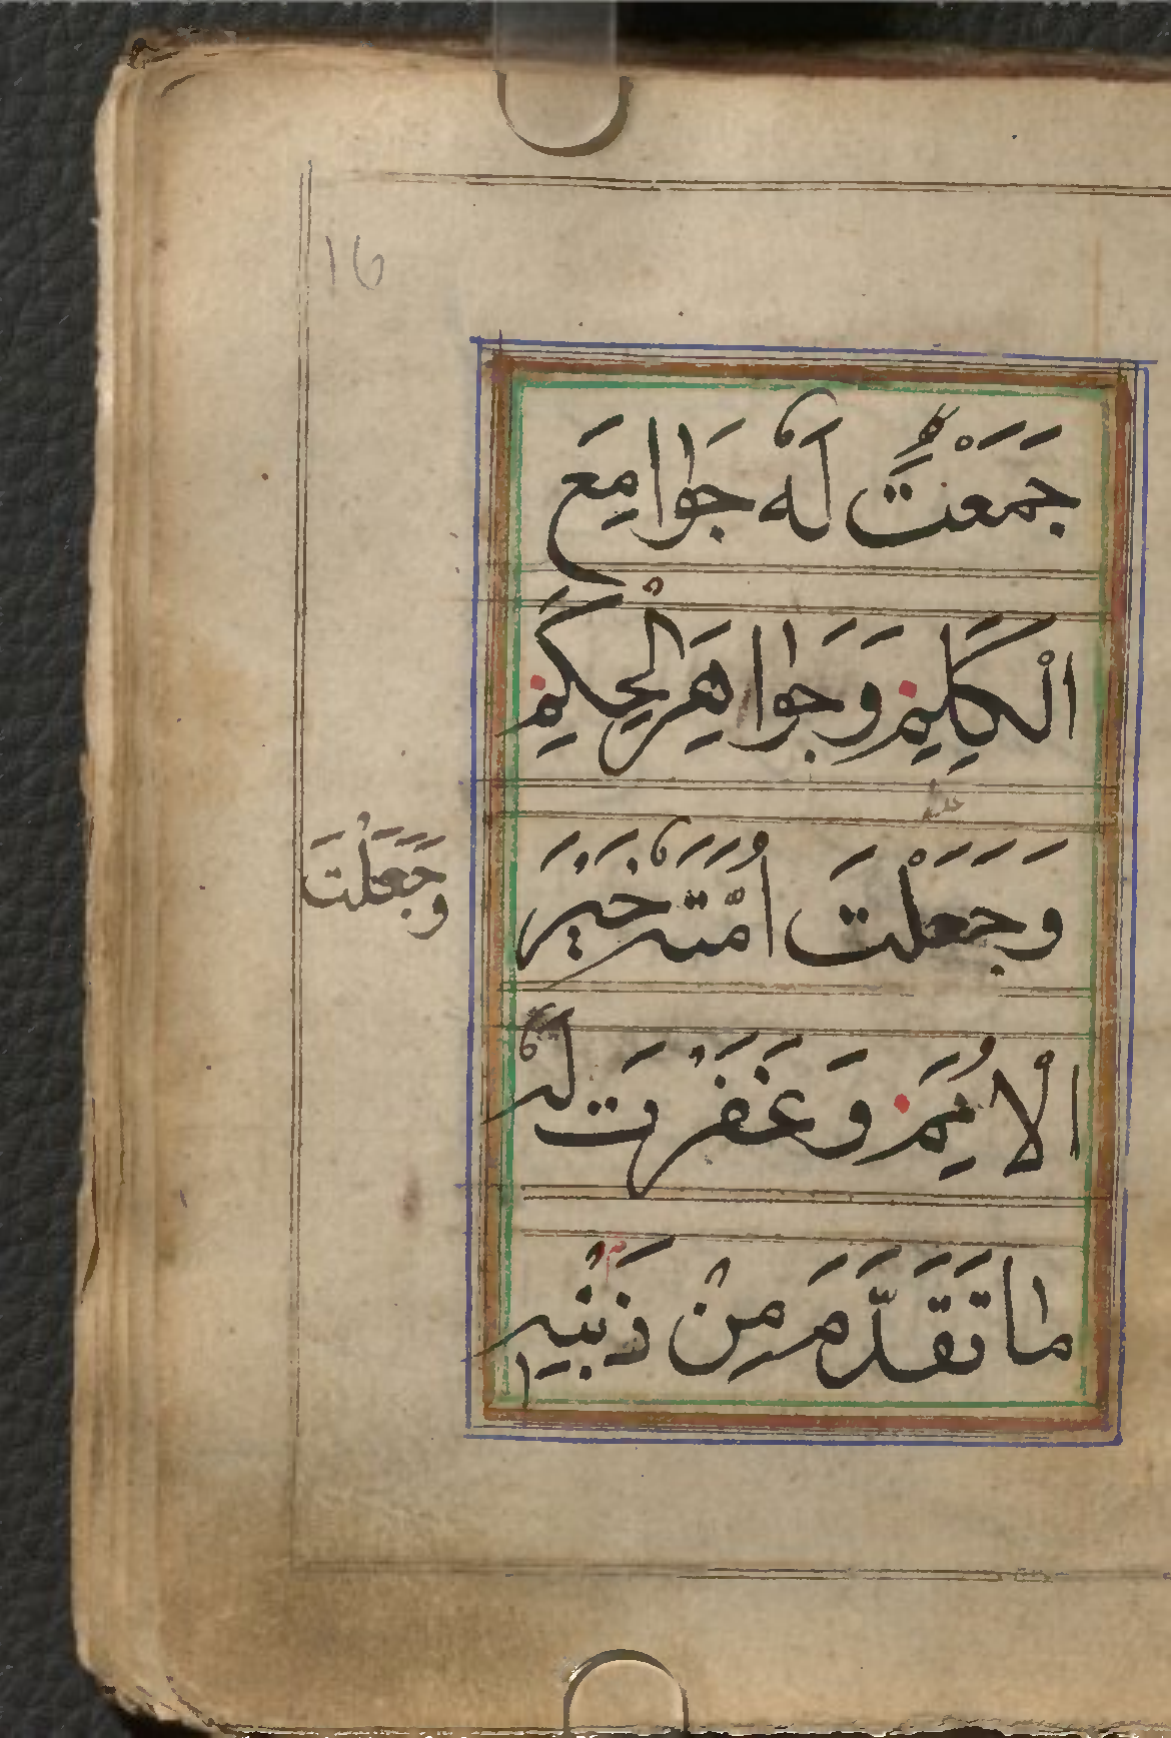 16
جَمَعْتَ لَهٗ جَوَامِعَ
الْكَلِمِ وَجَوَاهِرَ الْحِكَمِ
وَجَعَلْتَ اُمَّتَهٗ خَيْرَ
وَجَعَلْتَ
الْاُمَمِ وَغَفَرْتَ لَهٗ
مَا تَقَدَّمَ مِنْ ذَنْبِهِ